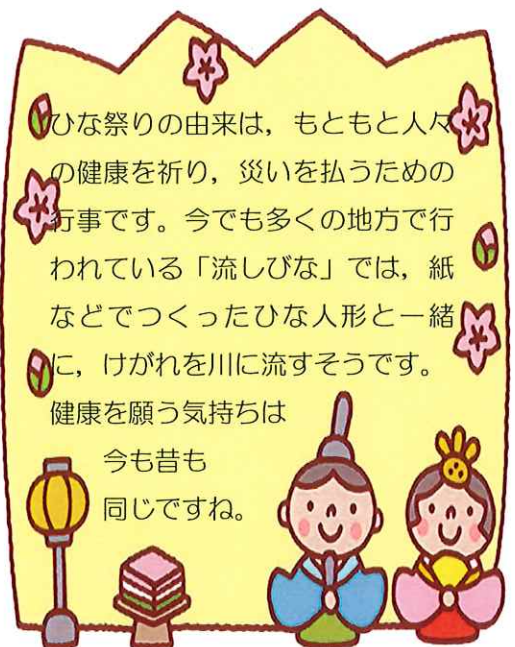 ひな祭りの由来は，もともと人々
の健康を祈り，災いを払うための
行事です。今でも多くの地方で行
われている「流しびな」では，紙
などでつくったひな人形と一緒
に，けがれを川に流すそうです。
健康を願う気持ちは
今も昔も
同じですね。